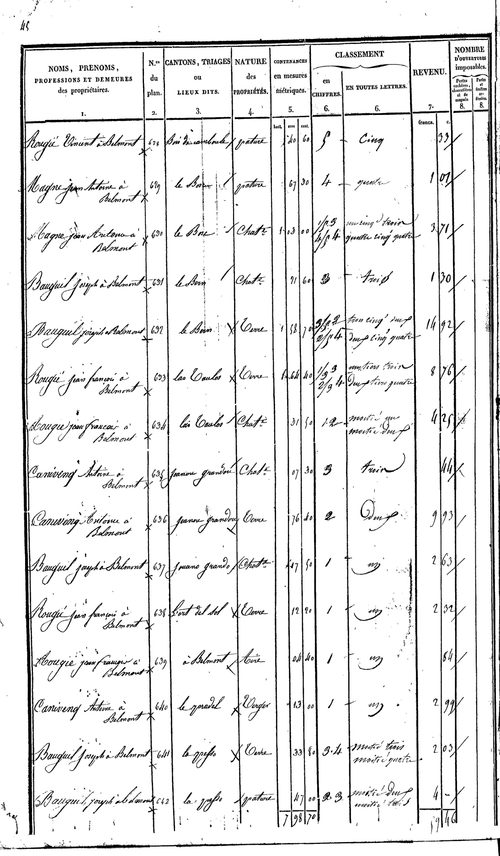 45
NOMS, PRENOMS, PROFESSIONS ET DEMEURES des propriétaires. N.os du plan. CANTONS, TRIAGES ou LIEUX DITS. NATURE des PROPRIÉTÉS. CONTENANCES en mesures métriques. CLASSEMENT en CHIFFRES. EN TOUTES LETTRES. REVENU. NOMBRE D'OUVERTURES imposables.
1. 2. 3. 4. 5. 6. 6. 7. 8. 8.
francs. c.
Rougié Vincent à Belmont 628 pature 40 60 5 Cinq 33
Magne jean Antoine à Belmont 629 le Born pature 67 30 4 quatre 1 01
Magne jean Antoine à Belmont 630 le Born Chat.e 1 03 00 1/5 3 4/5 4 un cinq.e trois quatre cinq.e quatre 3 71
Bauguil Joseph à Belmont 631 le Born Chat.e 21 60 3 trois 1 30
Bauguil joseph à Belmont 632 le Born Terre 1 58 3/5 2 2/5 4 trois cinq.e deux deux cinq.e quatre 14 92
Rougié jean françois à Belmont 633 las Taules Terre 1 64 40 1/3 3 2/3 4 un tiers trois deux tiers quatre 8 76
Rougié jean françois à Belmont 634 las Taules Chat.e 31 50 1 2 moitié un moitié deux 4 25
Canivenq Antoine à Belmont 635 jeanne grandou Chat.e 07 30 3 trois 44
Canivenq Antoine à Belmont 636 jeanne grandou Terre 76 40 2 Deux 9 93
Bauguil joseph à Belmont 637 grando Chat.e 17 50 1 un 2 63
Rougié jean françois à Belmont 638 L'ort del sol Terre 12 20 1 un 2 32
Rougié jean françois à Belmont 639 à Belmont Aire 04 40 1 un 84
Canivenq Antoine à Belmont 640 le pradel Verger 13 00 1 un 2 99
Bauguil Joseph à Belmont 641 Terre 33 80 3.4 moitié trois moitié quatre 2 03
Bauguil joseph à Belmont 642 pature 47 00 2 3 moitié deux moitié trois 4 -
7 98 70 59 46